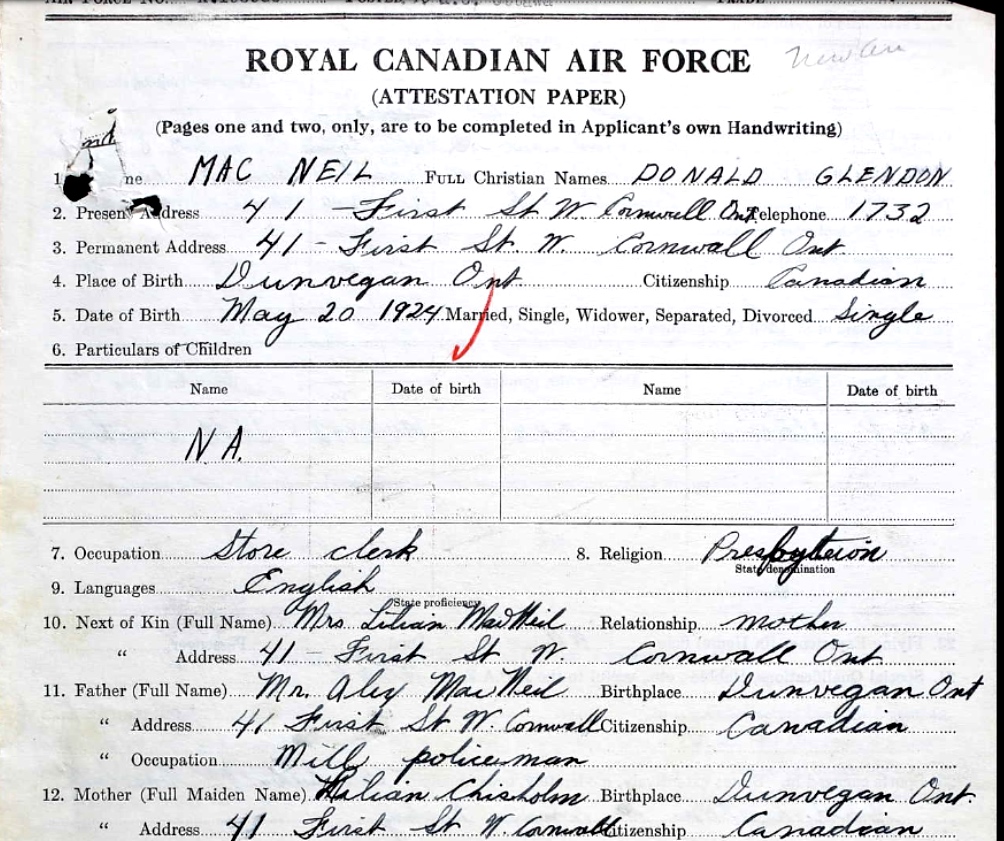 ROYAL CANADIAN AIR FORCE
(ATTESTATION PAPER)
(Pages one and two, only, are to be completed in Applicant's own Handwriting)
1 ne MAC NEIL FULL Christian Names DONALD GLENDON
2. Present Address 41 - First St W. Cornwall Ont Telephone 1732
3. Permanent Address 41 - First St. W. Cornwall Ont.
4. Place of Birth Dunvegan Ont. Citizenship Canadian
5. Date of Birth May 20 1924 Married, Single, Widower, Separated, Divorced Single
6. Particulars of Children
Name Date of birth Name Date of birth
N A.
7. Occupation Store clerk 8. Religion Presbyterion
State denomination
9. Languages English
State proficiency
10. Next of Kin (Full Name) Mrs Lilian MacNeil Relationship mother
" Address 41 - First St W. Cornwall Ont
11. Father (Full Name) Mr. Alex MacNeil Birthplace Dunvegan Ont
" Address 41 First St W. Cornwall Citizenship Canadian
" Occupation Mill policeman
12. Mother (Full Maiden Name) Lilian Chisholm Birthplace Dunvegan Ont.
" Address 41 First St W Cornwall Citizenship Canadian